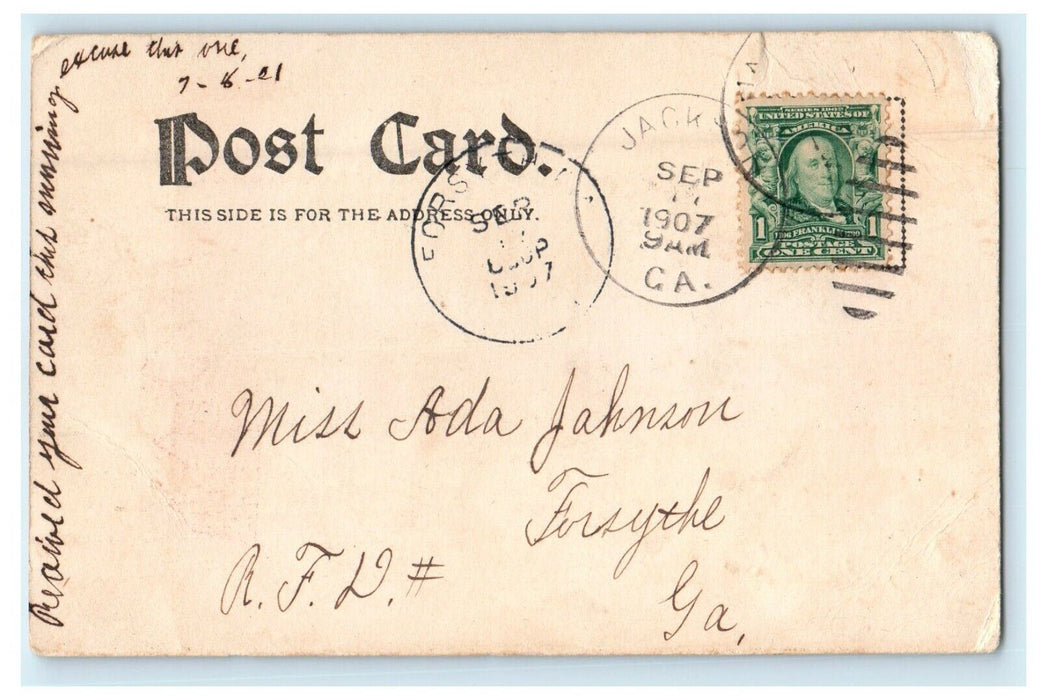 Received your card this morning
excuse this one,
7-8-21
Post Card.
THIS SIDE IS FOR THE ADDRESS ONLY.
FORSYTH
SEP
1907
JACKSON
SEP
1907
9 AM
GA.
SERIES 1902
UNITED STATES OF
AMERICA
1 FRANKLIN 1
POSTAGE
ONE CENT
Miss Ada Johnson
Forsythe
R. F. D. #
Ga,